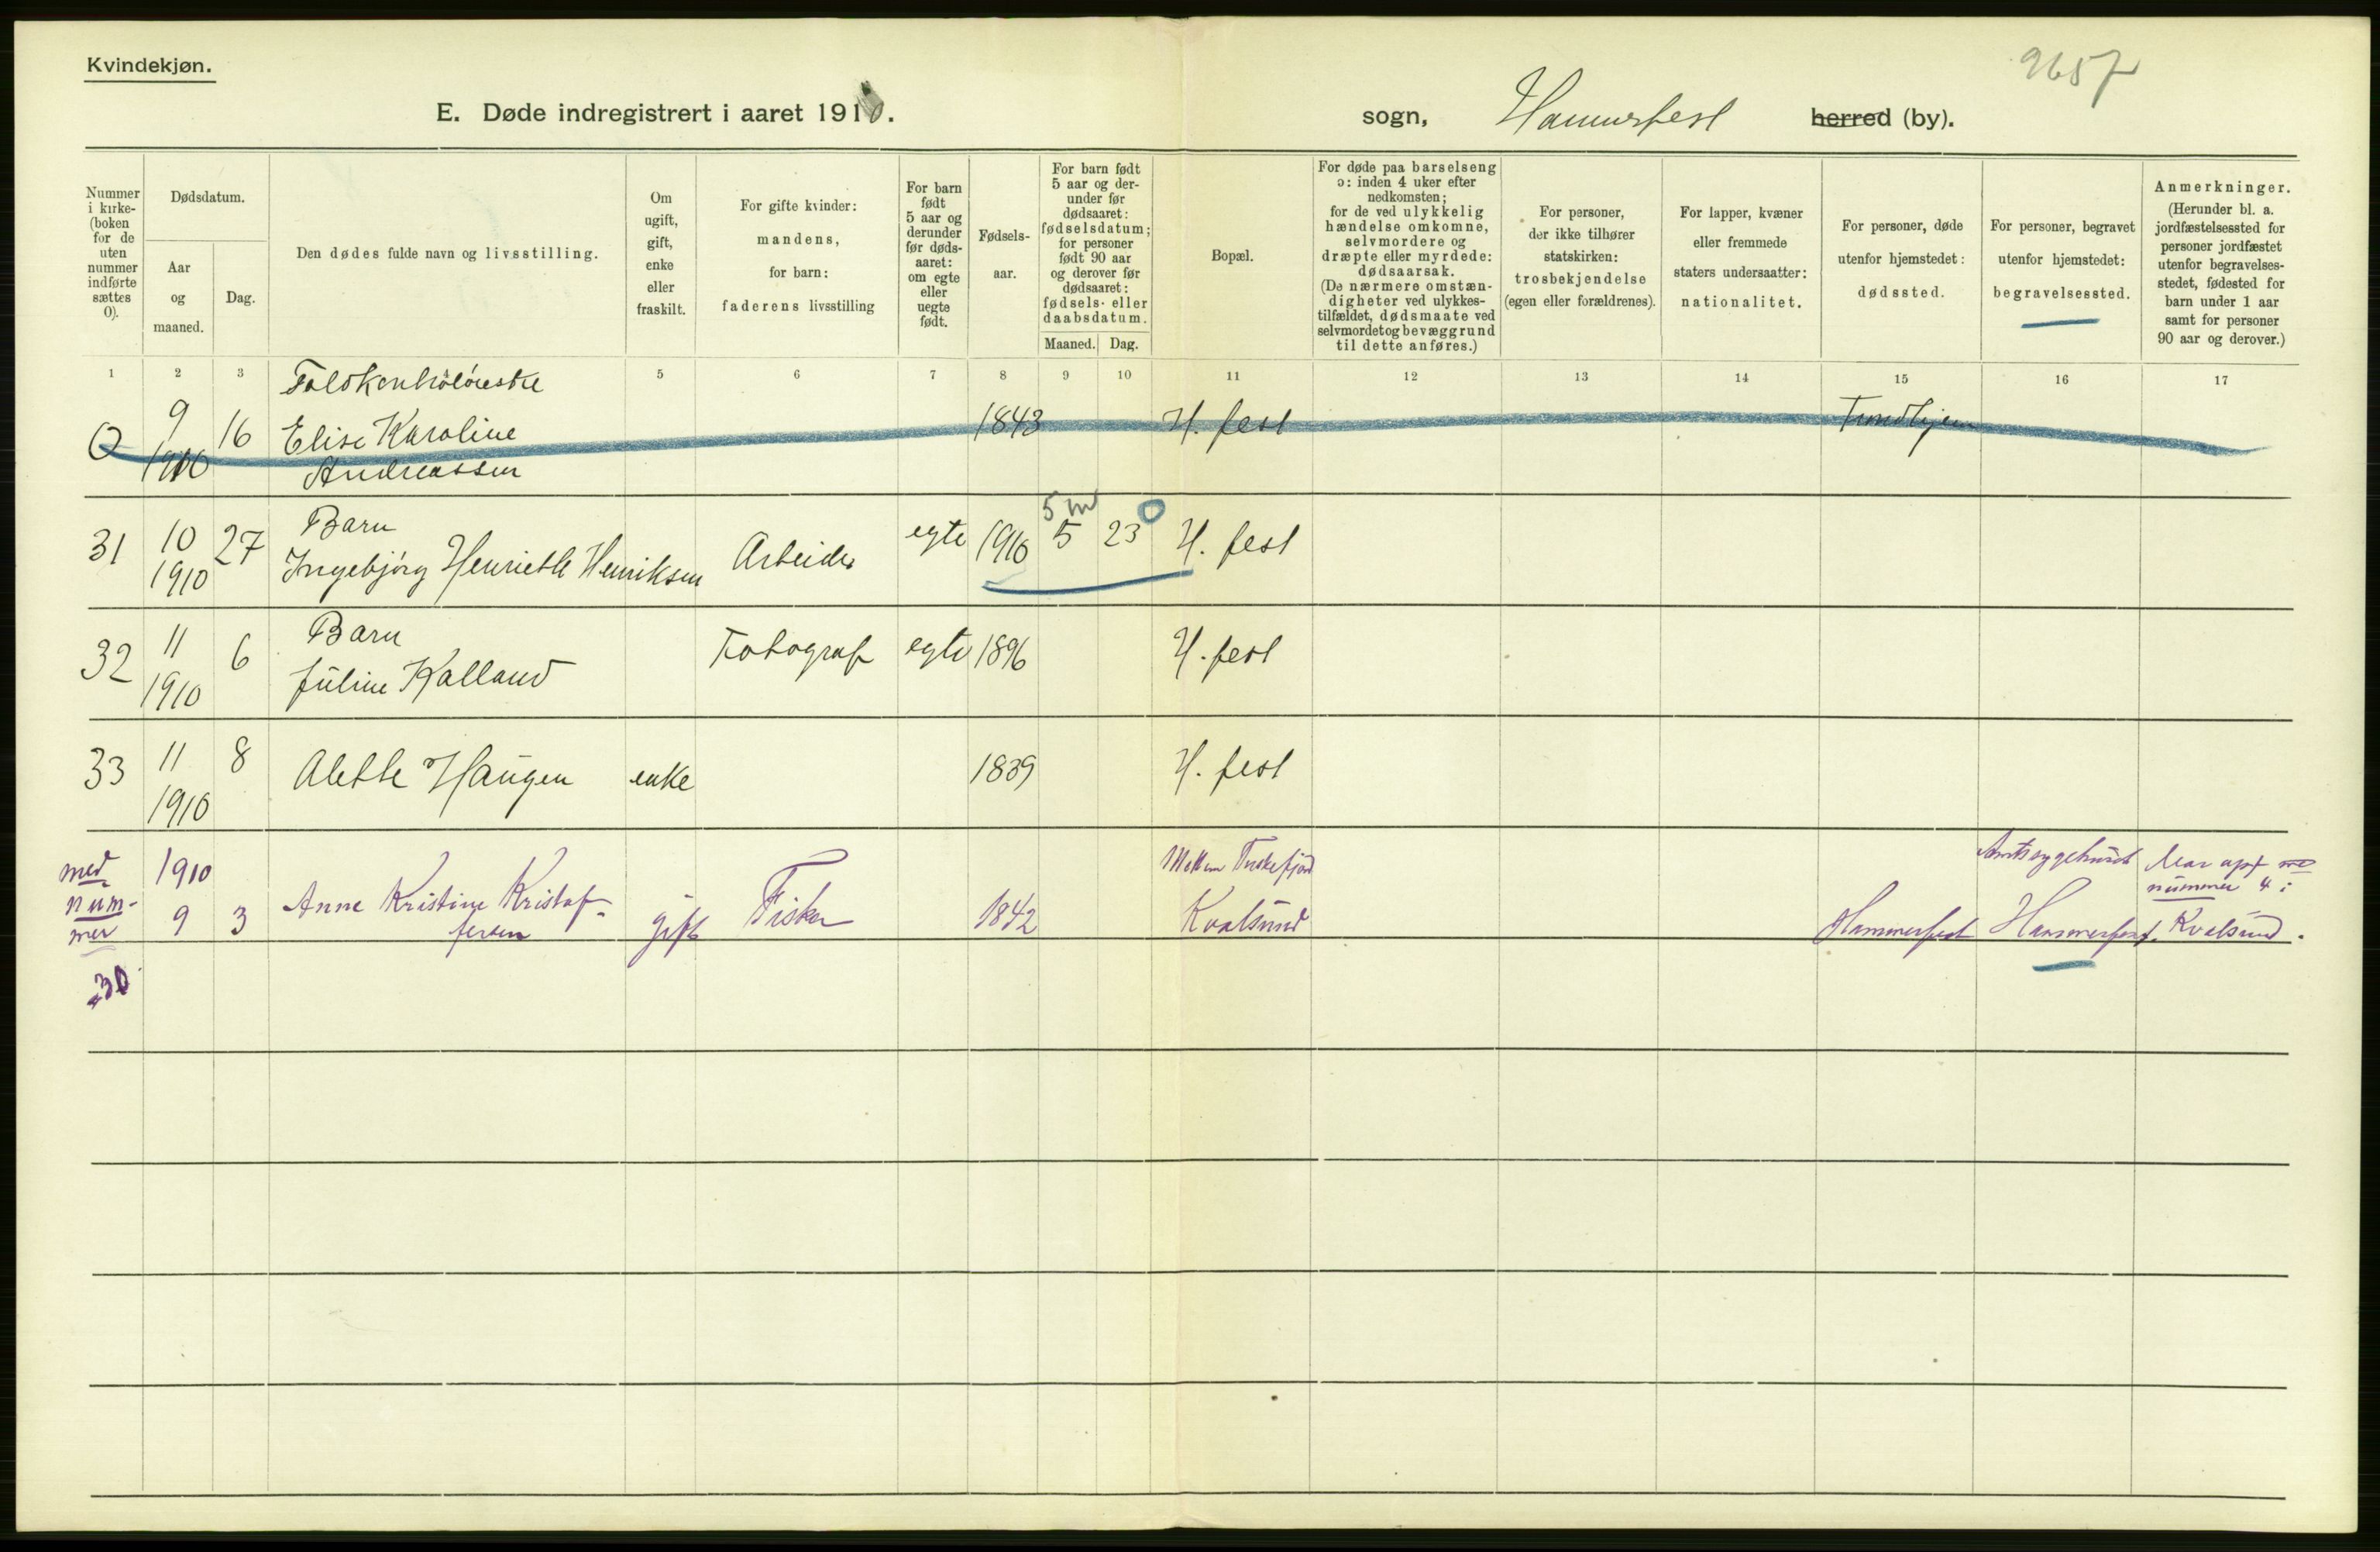 Kvindekjøn.
9657
E. Døde indregistrert i aaret 1910.
sogn, Hammerfest herred (by).
Nummer
i kirke-
(boken
for de
uten
nummer
indførte
sættes
0).
Dødsdatum.
Aar
og
maaned.
Dag.
Den dødes fulde navn og livsstilling.
Om
ugift,
gift,
enke
eller
fraskilt.
For gifte kvinder:
mandens,
for barn:
faderens livsstilling
For barn
født
5 aar og
derunder
før døds-
aaret:
om egte
eller
uegte
født.
Fødsels-
aar.
For barn født
5 aar og der-
under før
dødsaaret:
fødselsdatum;
for personer
født 90 aar
og derover før
dødsaaret:
fødsels- eller
daabsdatum.
Maaned.
Dag.
Bopæl.
For døde paa barselseng
ɔ: inden 4 uker efter
nedkomsten;
for de ved ulykkelig
hændelse omkomne,
selvmordere og
dræpte eller myrdede:
dødsaarsak.
(De nærmere omstæn-
digheter ved ulykkes-
tilfældet, dødsmaate ved
selvmord et og bevæggrund
til dette anføres.)
For personer,
der ikke tilhører
statskirken:
trosbekjendelse
(egen eller forældrenes).
For lapper, kvæner
eller fremmede
staters undersaatter:
nationalitet.
For personer, døde
utenfor hjemstedet:
dødssted.
For personer, begravet
utenfor hjemstedet:
begravelsessted.
Anmerkninger.
(Herunder bl. a.
jordfæstelsessted for
personer jordfæstet
utenfor begravelses-
stedet, fødested for
barn under 1 aar
samt for personer
90 aar og derover.)
1 2 3 5 6 7 8 9 10 11 12 13 14 15 16 17
0 9 1910 16 Elise Karoline Andreassen 1843 H. fest Trondhjem
5 m 0
31 10 1910 27 Barn Ingebjørg Henriette Henriksen Arbeider egte 1910 5 23 H. fest
32 11 1910 6 Barn Juline Kalland Fotograf egte 1896 H. fest
33 11 1910 8 Alette Haugen enke 1839 H. fest
med num- mer 30 1910 9 3 Anne Kristine Kristof- fersen gift Fisker 1842 Kvalsund Hammerfest Amtssygehuset Hammerfest.
nummer 4 i
Kvalsund.